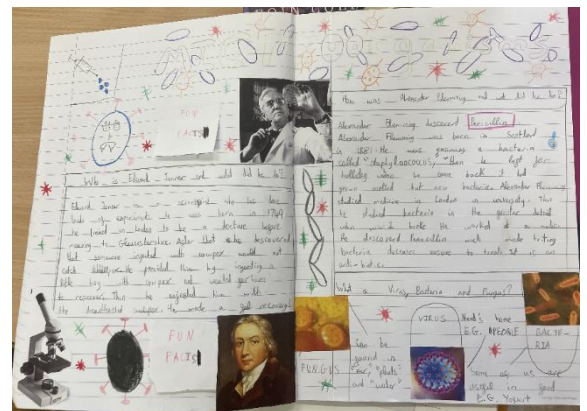 FUN
FACTS
Who is Edward Jenner and did did he do?
Edward Jenner was a scientist. He has done
lots of experiments he was born in 1749
he in London to be a doctor before
moving to Gloucestershire. After that he discovered
that someone with cowpox would not
catch smallpox. He this by injecting a
little boy with cowpox and waited
to recover. Then he injected him with
the smallpox. He made a full recovery
FUN
FACTS
How was Alexander Flemming and what did he do?
Alexander Flemming discovered Penicillin.
Alexander Flemming was born in Scotland
in 1881. He was growing a bacteria
called "staphylococcus", then he left for
holiday when he came back it had
grown mould that new bacteria. Alexander Flemming
studied medicine in London in university. Then
he studied bacteria in the greater detail
when war broke. He worked as a medic
He discovered which made
bacteria diseases easier to treat. It is an
anti-biotic.
What is Virus, Bacteria and Fungus?
FUNGUS
Can be
found in
"air", "plants"
and "water"
VIRUS
Needs home
E.G. PEOPLE
BACTE-
RIA
Some of us are
useful in good
E.G. Yogurt